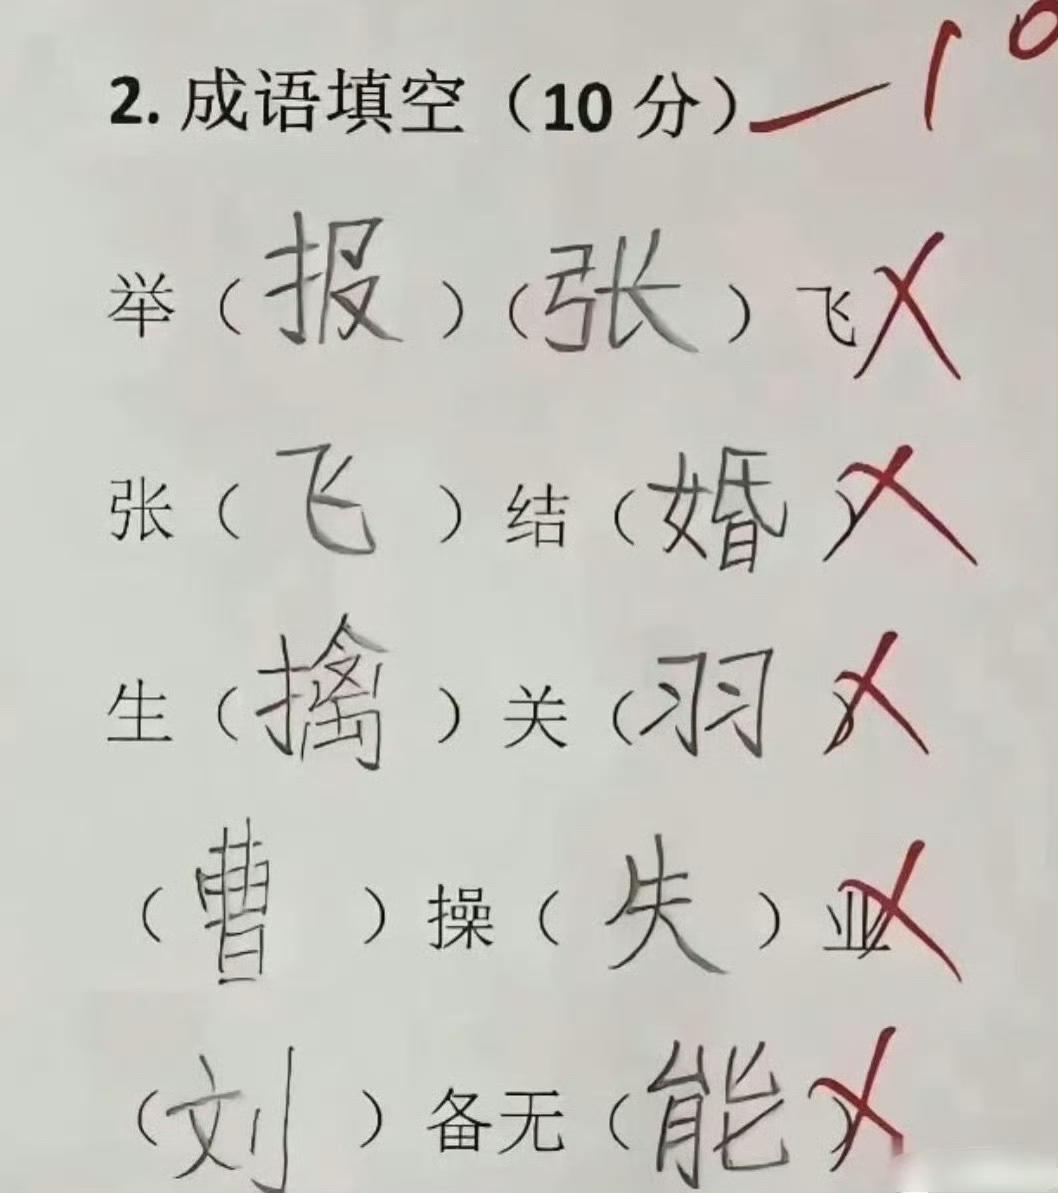 2. 成语填空（10 分） -10
举（报）（张）飞
张（飞）结（婚）
生（擒）关（羽）
（曹）操（失）业
（刘）备无（能）